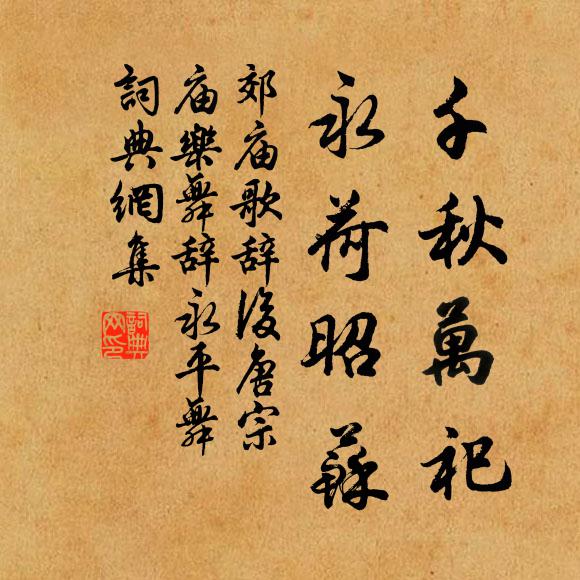 千秋萬祀
永荷昭蘇
郊庙歌辞後唐宗
庙樂舞辞永平舞
詞典網集
詞典网印